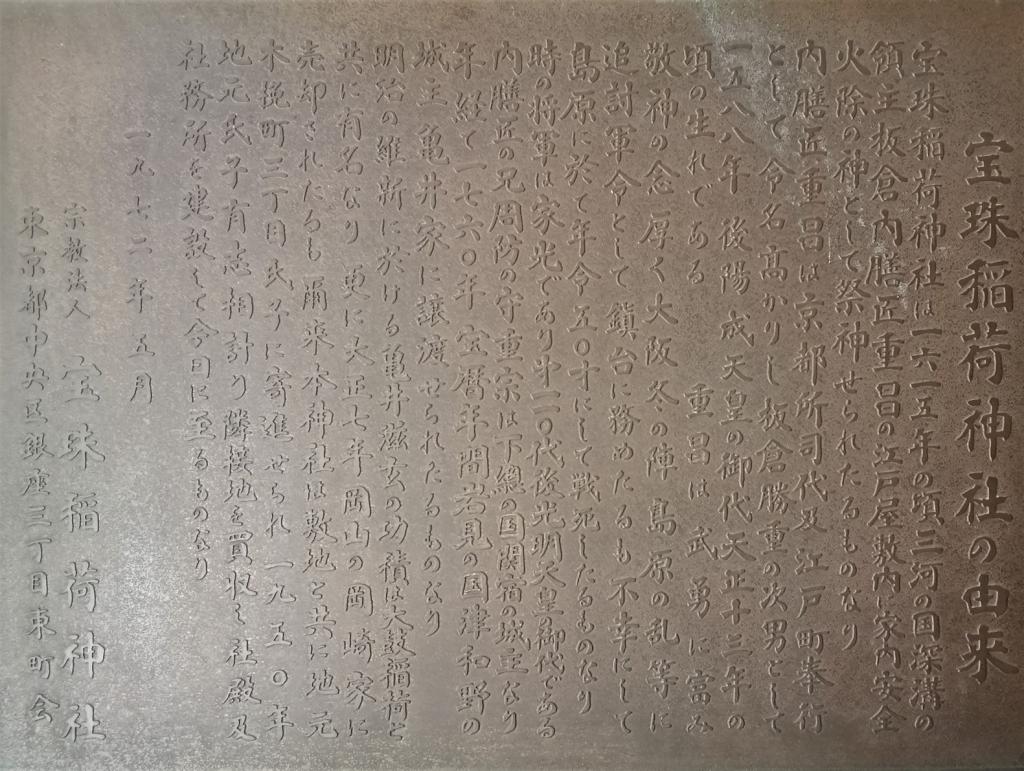 宝珠稲荷神社の由来
宝珠稲荷神社は一六一五年の頃三河の国深溝の
領主板倉内膳匠重昌の江戸屋敷内に家内安全
火除の神として祭神せられたるものなり
内膳匠重昌は京都所司代及江戸町奉行
として令名高かりし板倉勝重の次男として
一五八八年後陽成天皇の御代天正十三年の
頃の生れである 重昌は武勇に富み
敬神の念厚く大阪冬の陣島原の乱等に
追討軍令として鎮台に務めたるも不幸にして
島原に於て年令五〇才にして戦死したるものなり
時の将軍は家光であり才一一〇代後光明天皇の御代である
内膳匠の兄周防の守重宗は下總の国関宿の城主なり
年経て一七六〇年宝暦年間岩見の国津和野の
城主亀井家に譲渡せられたるものなり
明治の維新に於ける亀井茲玄の功積は太鼓稲荷と
共に有名なり 更に大正七年岡山の岡崎家に
売却されたるも爾来本神社は敷地と共に地元
木挽町三丁目氏子に寄進せられ一九五〇年
地元氏子有志相計り隣接地を買収し社殿及
社務所を建設して今日に至るものなり
一九七二年五月
宗教法人 宝珠稲荷神社
東京都中央区銀座三丁目東町会